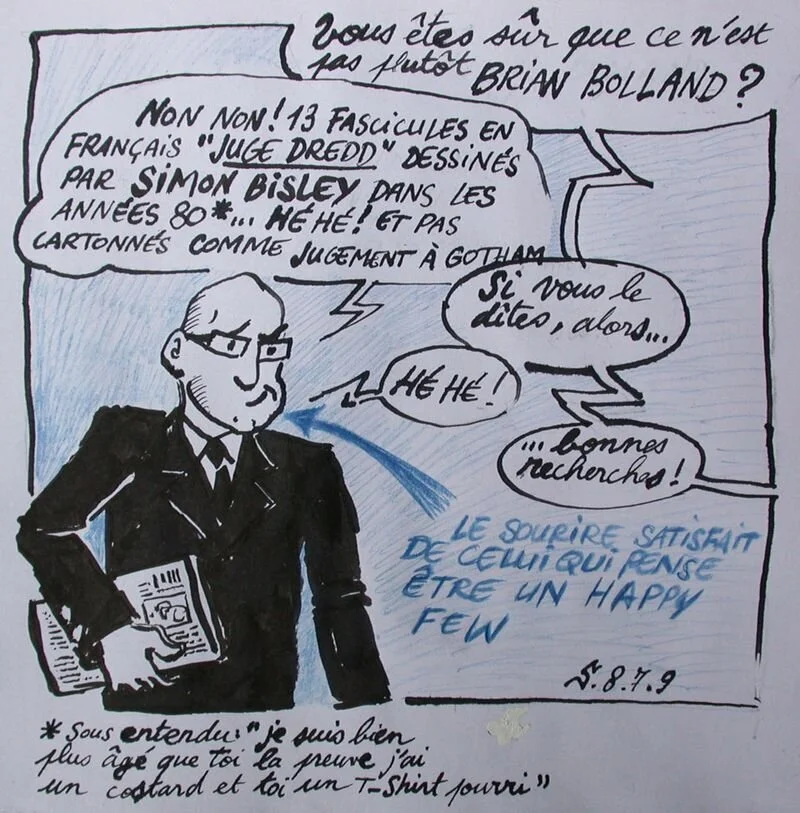 Vous êtes sûr que ce n'est
pas plutôt BRIAN BOLLAND ?
NON NON ! 13 FASCICULES EN
FRANÇAIS "JUGE DREDD" DESSINÉS
PAR SIMON BISLEY DANS LES
ANNÉES 80*... HÉ HÉ ! ET PAS
CARTONNÉS COMME JUGEMENT À GOTHAM
Si vous le
dites, alors...
HÉ HÉ !
... bonnes
recherches !
LE SOURIRE SATISFAIT
DE CELUI QUI PENSE
ÊTRE UN HAPPY
FEW
S. 8.7.9
* Sous entendu : "je suis bien
plus âgé que toi la preuve j'ai
un costard et toi un T-Shirt pourri"